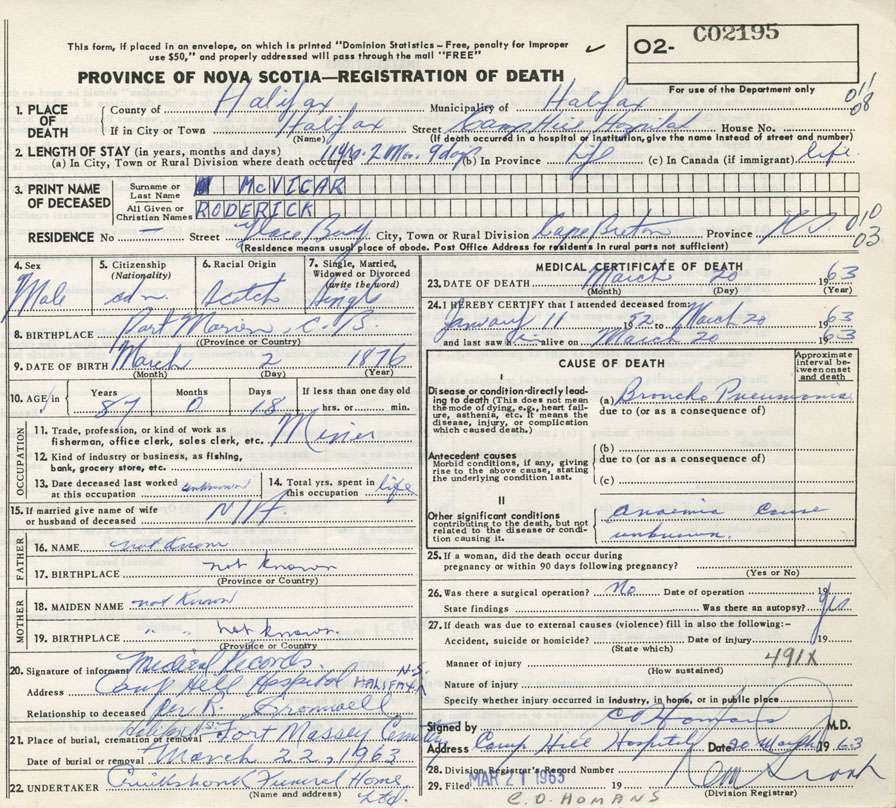 This form, if placed in an envelope, on which is printed "Dominion Statistics - Free, penalty for Improper
use $50," and properly addressed will pass through the mail "FREE"
O2- CO2195
PROVINCE OF NOVA SCOTIA—REGISTRATION OF DEATH
For use of the Department only
1. PLACE OF DEATH
County of Halifax Municipality of Halifax 011
If in City or Town Halifax Street Camp Hill Hospital House No. 08
(Name) (If death occurred in a hospital or institution, give the name instead of street and number)
2. LENGTH OF STAY (in years, months and days)
(a) In City, Town or Rural Division where death occurred 2 Mon. 9 days (b) In Province life (c) In Canada (if immigrant) life
3. PRINT NAME OF DECEASED
Surname or Last Name McVICAR
All Given or Christian Names RODERICK
RESIDENCE No — Street Glace Bay City, Town or Rural Division Cape Breton Province N.S. 010 03
(Residence means usual place of abode. Post Office Address for residents in rural parts not sufficient)
4. Sex Male
5. Citizenship (Nationality) cdn.
6. Racial Origin Scotch
7. Single, Married, Widowed or Divorced (write the word) Single
8. BIRTHPLACE Port Morien, C.B.
(Province or Country)
9. DATE OF BIRTH March 2 1876
(Month) (Day) (Year)
10. AGE in Years Months Days If less than one day old
87 0 18 hrs. or min.
OCCUPATION
11. Trade, profession, or kind of work as
fisherman, office clerk, sales clerk, etc. Miner
12. Kind of industry or business, as fishing,
bank, grocery store, etc.
13. Date deceased last worked at this occupation unknown
14. Total yrs. spent in this occupation life
15. If married give name of wife
or husband of deceased N/A
FATHER
16. NAME not Known
17. BIRTHPLACE not known
(Province or Country)
MOTHER
18. MAIDEN NAME not Known
19. BIRTHPLACE " " not known.
(Province or Country
20. Signature of informant Medical Records.
Address Camp Hill Hospital HALIFAX N.S.
Relationship to deceased per R. Bromwell
21. Place of burial, cremation or removal Fort Massey Cemetery
Date of burial or removal March 22, 1963
22. UNDERTAKER Cruikshank Funeral Home Ltd.
(Name and address)
MEDICAL CERTIFICATE OF DEATH
23. DATE OF DEATH March 20 1963
(Month) (Day) (Year)
24. I HEREBY CERTIFY that I attended deceased from:
January 11 1952 to March 20 1963
and last saw him alive on March 20 1963
CAUSE OF DEATH
Approximate interval between onset and death
I
Disease or condition directly leading to death (This does not mean the mode of dying, e.g., heart failure, asthenia, etc. It means the disease, injury, or complication which caused death.)
(a) Broncho Pneumonia
due to (or as a consequence of)
Antecedent causes
Morbid conditions, if any, giving rise to the above cause, stating the underlying condition last.
(b)
due to (or as a consequence of)
(c)
II
Other significant conditions
contributing to the death, but not related to the disease or condition causing it.
anaemia cause
unknown.
25. If a woman, did the death occur during
pregnancy or within 90 days following pregnancy?
(Yes or No)
26. Was there a surgical operation? No Date of operation 19
State findings Was there an autopsy? yes
27. If death was due to external causes (violence) fill in also the following:-
Accident, suicide or homicide? Date of injury 19
(State which)
Manner of injury 491X
(How sustained)
Nature of injury
Specify whether injury occurred in industry, in home, or in public place
Signed by C D Homans M.D.
Address Camp Hill Hospital Date 20 March 1963
28. Division Registrar's Record Number
29. Filed MAR 21 1963 19
(Division Registrar)
C. D. HOMANS